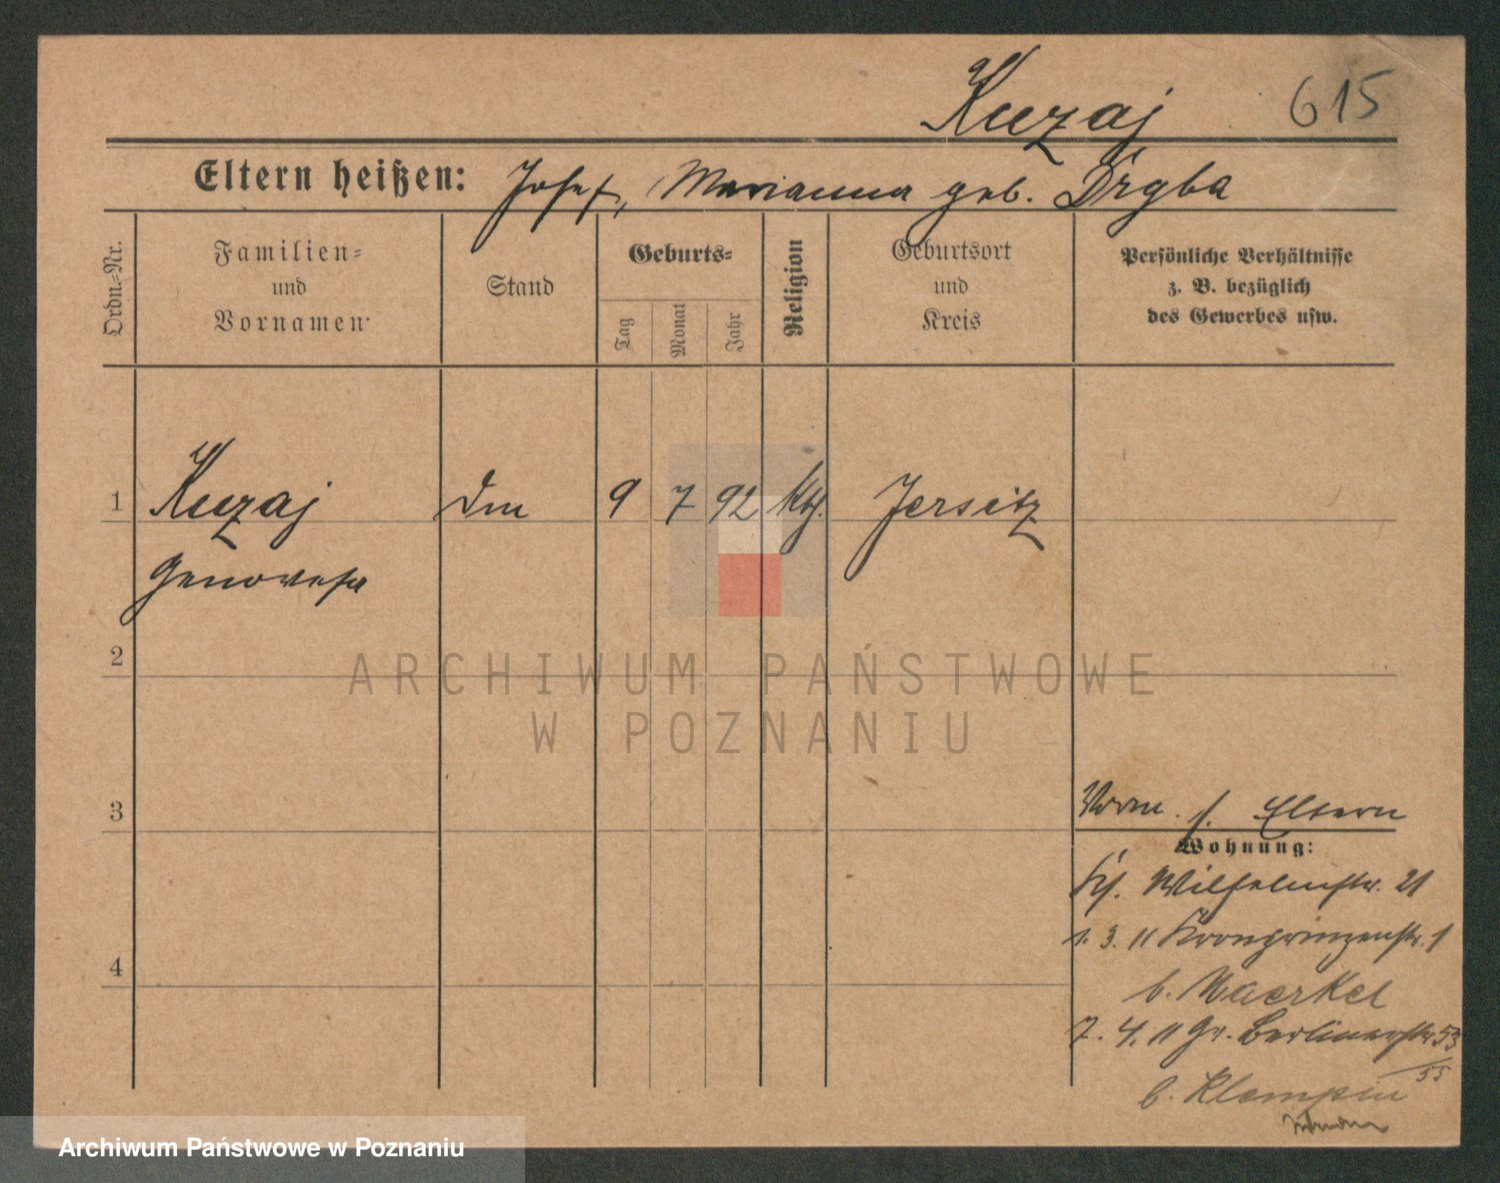 Kuzaj 615
Eltern heißen: Josef, Marianna geb. Drgba
Ordn.=Nr.
Familien=
und
Vornamen
Stand
Geburts=
Tag
Monat
Jahr
Religion
Geburtsort
und
Kreis
Persönliche Verhältnisse
z. B. bezüglich
des Gewerbes usw.
1 Kuzaj 9 7 92 Kth. Jersitz
Genovefa
2
ARCHIWUM PAŃSTWOWE
W POZNANIU
3
Vorm. s. Eltern
Wohnung:
Wilhelmstr. 21
1. 3. 11 Kronprinzenstr. 1
b. Maerkel
4
7. 4. 11 Gr. Berlinerstr 53
55
b. Klempin
Archiwum Państwowe w Poznaniu